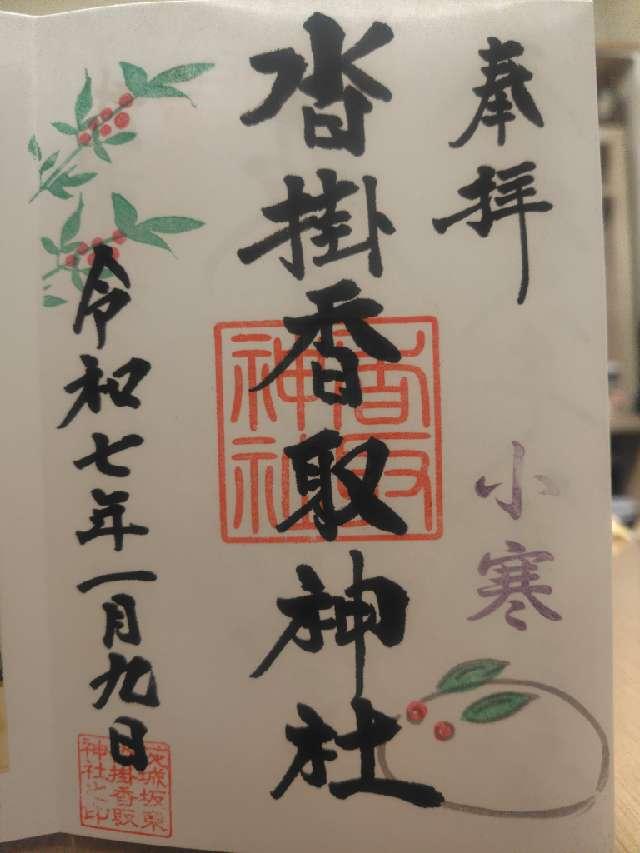 奉拝
小寒
沓掛香取神社
香取神社
令和七年一月九日
茨城坂東
沓掛香取
神社之印